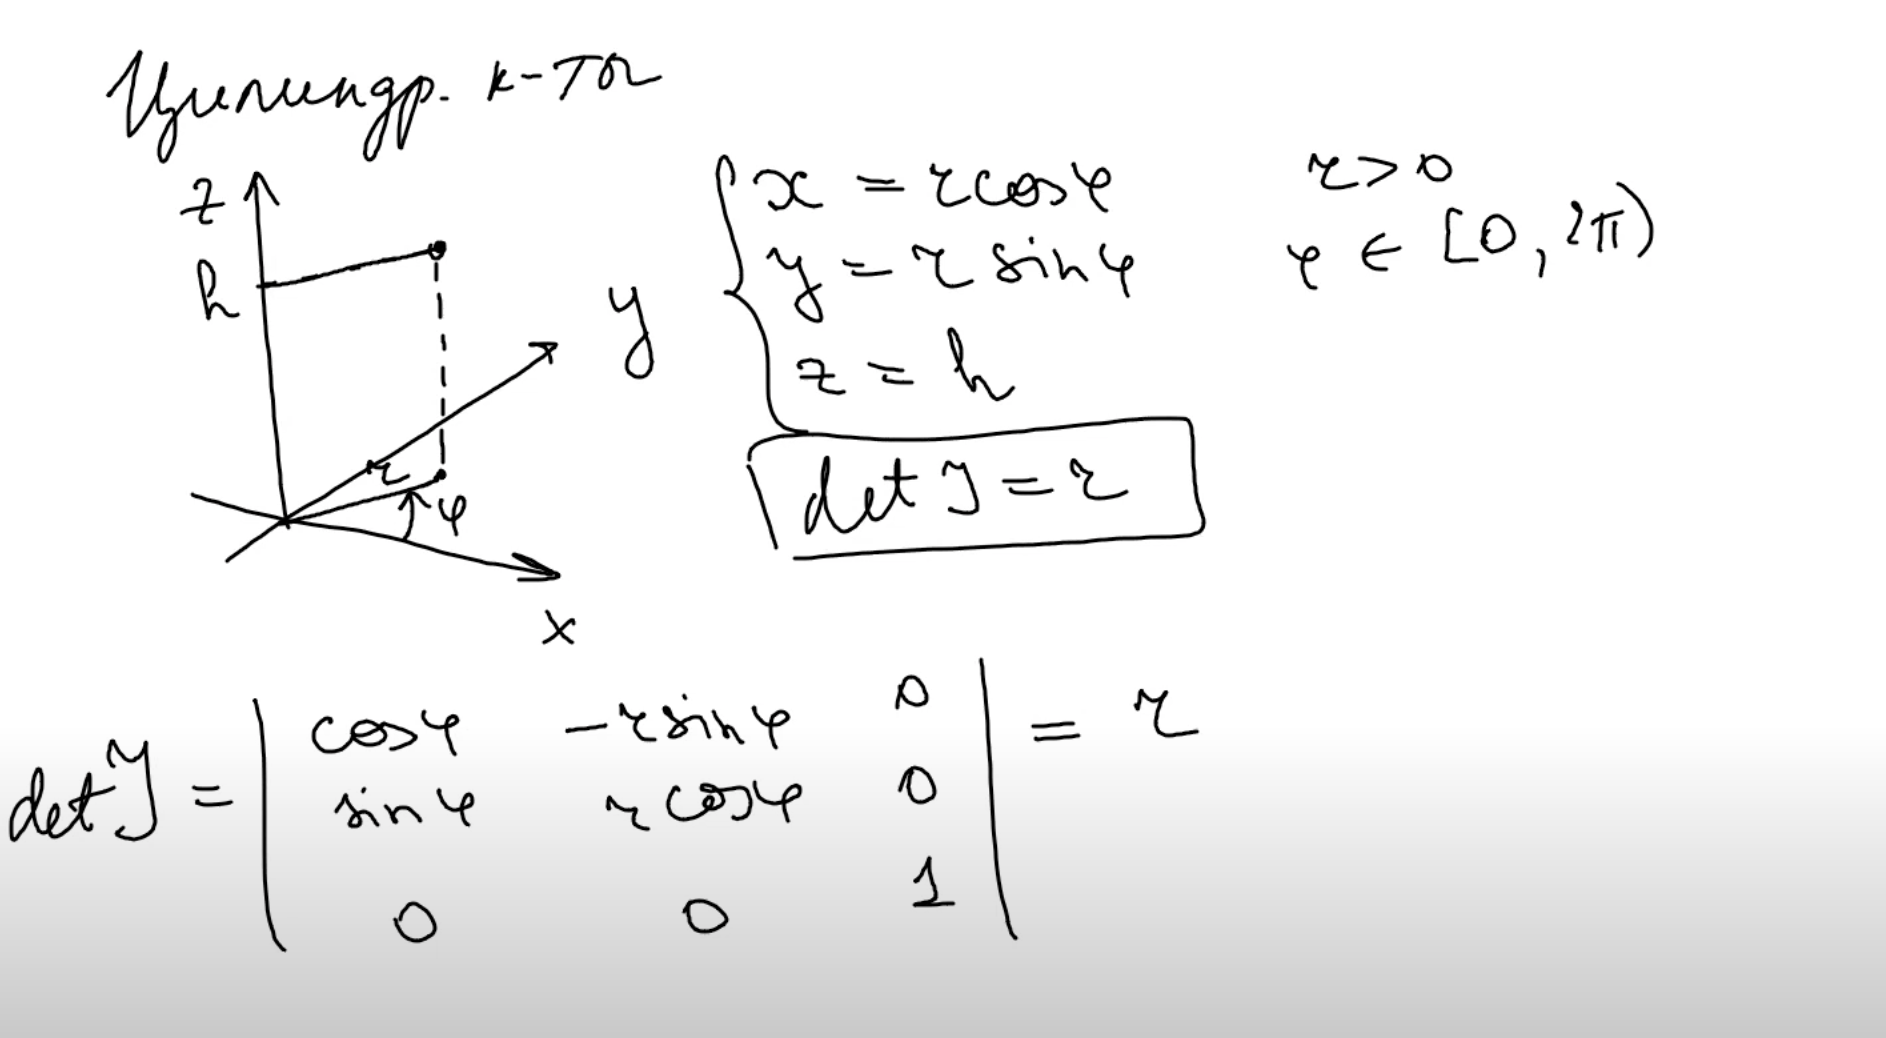 Цилиндр. к-ты
z
h
y
r
φ
x
x = r cos φ
y = r sin φ
z = h
r > 0
φ ∈ [0, 2π)
det J = r
det J = | cos φ   -r sin φ   0 | = r
sin φ   r cos φ   0
0   0   1